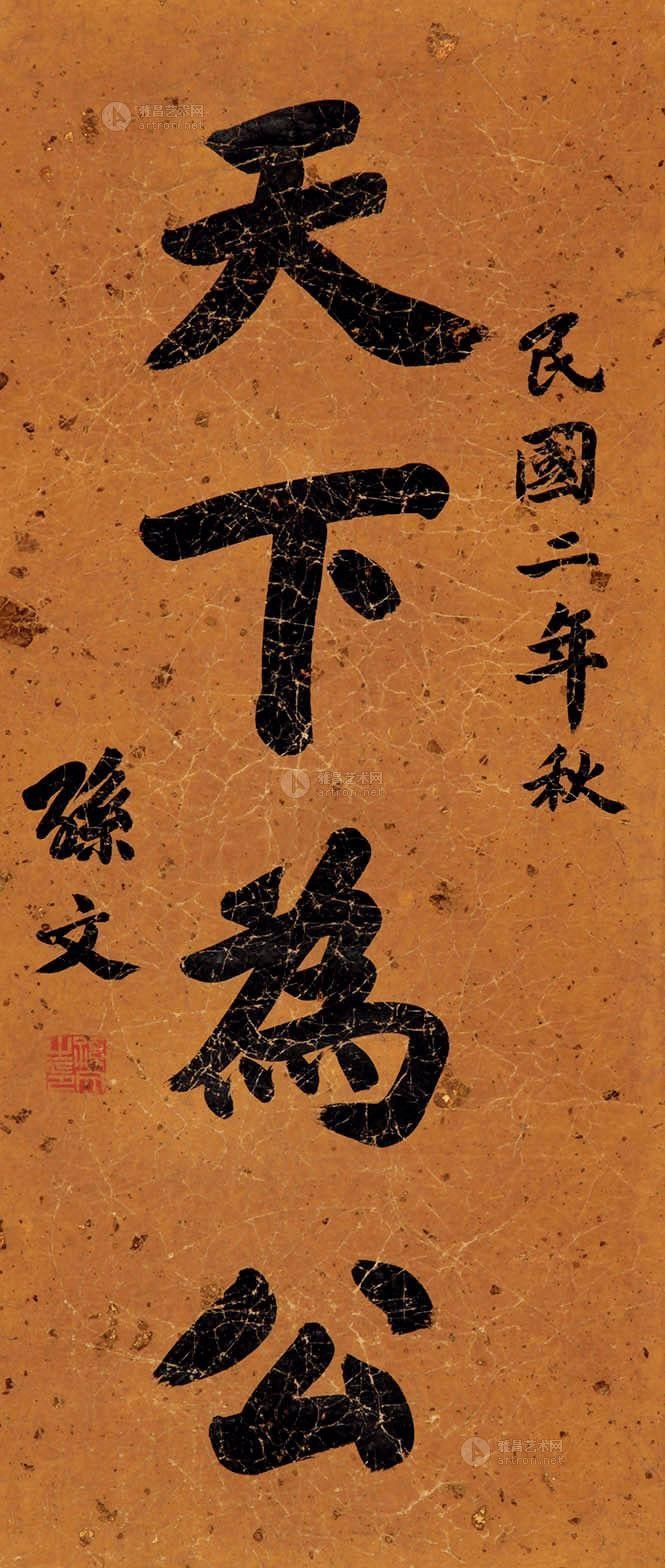 民國二年秋
天下為公
孫文
雅昌艺术网
artron.net
雅昌艺术网
artron.net
雅昌艺术网
artron.net